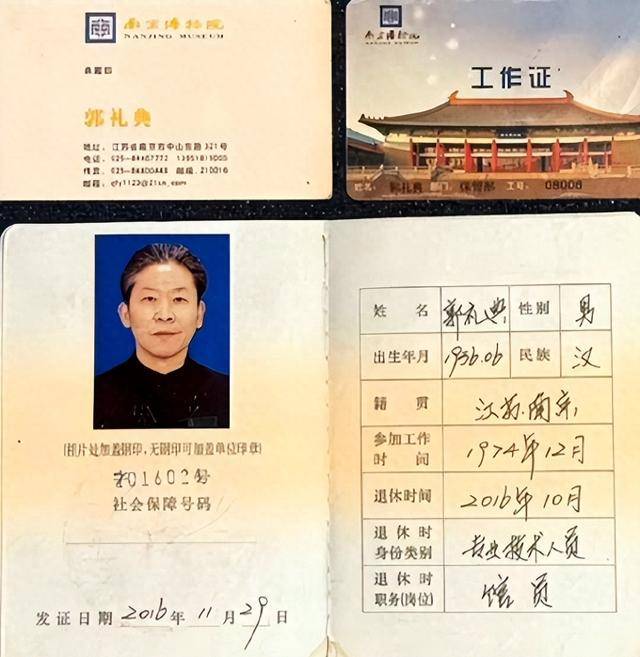 南京博物院
NANJING MUSEUM
郭礼典
地址：江苏省南京市中山东路321号
邮编：210016
南京博物院
工作证
姓名：郭礼典 部门：保管部 工号：08006
(相片处加盖钢印，无钢印可加盖单位印章)
2016024号
社会保障号码
发证日期 2016年 11月 29日
姓名 郭礼典 性别 男
出生年月 1956.06 民族 汉
籍贯 江苏.南京
参加工作时间 1974年12月
退休时间 2016年10月
退休时身份类别 专业技术人员
退休时职务(岗位) 馆员